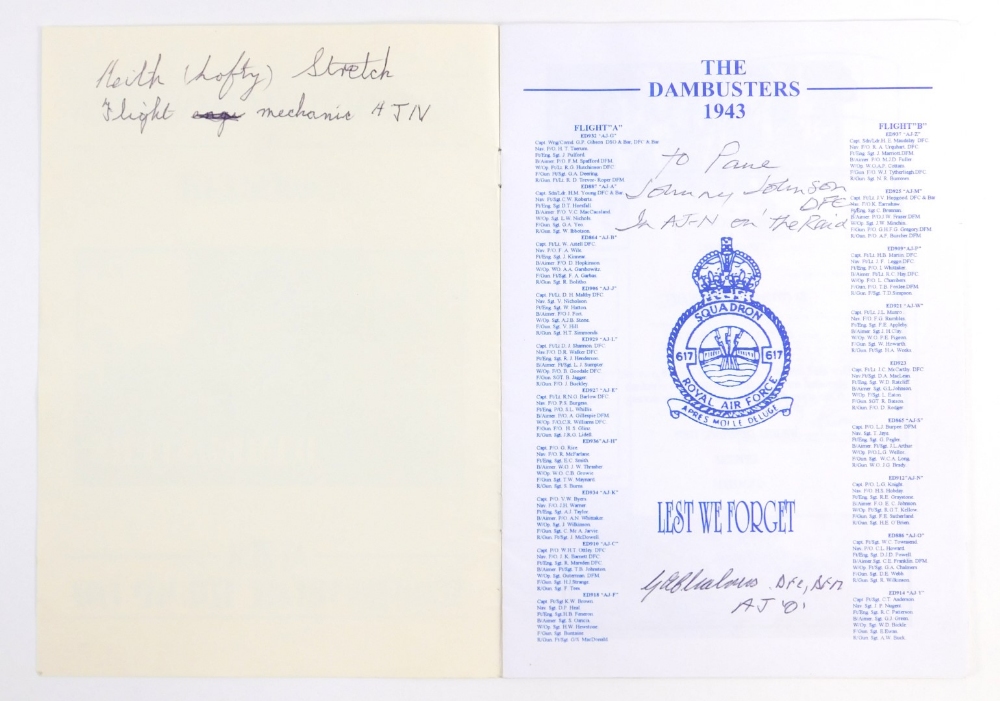 Keith (Lofty) Stretch
Flight mechanic AJN
THE
DAMBUSTERS
1943
FLIGHT"A"
ED932 "AJ-G"
Capt. Wng/Cmnd. G.P. Gibson. DSO & Bar, DFC & Bar
Nav. P/O. H.T. Taerum.
Ft/Eng. Sgt. J. Pulford.
B/Aimer P/O. F.M. Spafford.DFM
W/Op. Ft/Lt. R.G. Hutchison DFC
F/Gun F/Sgt. G.A. Deering.
R/Gun. Ft/Lt. R.D. Trevor-Roper DFM.
ED887 "AJ-A"
Capt. Sdn/Ldr. H.M. Young DFC & Bar
Nav. Ft/Sgt C.W. Roberts
Ft/Eng. Sgt D.T. Horsfall
B/Aimer. F/O. V.C. MacCausland
W/Op. Sgt L.W. Nichols
F/Gun. Sgt G.A. Yeo
R/Gun. Sgt W. Ibbotson.
ED864 "AJ-B"
Capt. Ft/Lt. W. Astell DFC
Nav. P/O. F.A. Wile
Ft/Eng. Sgt. J. Kinnear
B/Aimer F/O. D. Hopkinson
W/Op. WO. A.A. Garshowitz
F/Gun F/Sgt. F.A. Garbas
R/Gun. Sgt R. Bolitho
ED906 "AJ-J"
Capt. Ft/Lt. D.H. Maltby DFC
Nav. Sgt. V. Nicholson
Ft/Eng. Sgt. W. Hatton
B/Aimer. P/O J. Fort
W/Op. Sgt. A.J.B. Stone
F/Gun Sgt. V. Hill
R/Gun. Sgt. H.T. Simmonds
ED929 "AJ-L"
Capt. Ft/Lt D.J. Shannon. DFC
Nav F/O. D.R. Walker DFC
Ft/Eng. Sgt. R.J. Henderson.
B/Aimer. Ft/Sgt. L.J. Sumpter
W/Op. F/O. B. Goodale DFC
F/Gun. SGT. B. Jagger
R/Gun. P/O. J. Buckley
ED927 "AJ-E"
Capt. Ft/Lt. R.N.G. Barlow DFC
Nav. F/O. P.S. Burgess
Ft/Eng. P/O. S.L. Whillis
B/Aimer. P/O. A. Gillespie DFM
W/Op. F/O.C.R. Williams DFC
F/Gun. F/O. H.S. Glinz
R/Gun. Sgt. J.R.G. Lidell.
ED936"AJ-H"
Capt. P/O. G. Rice
Nav. F/O. R. McFarlane
Ft/Eng. Sgt. E.C. Smith
B/Aimer. W.O. J.W. Thrasher
W/Op. W.O. C.B. Gowrie
F/Gun. Sgt. T.W. Maynard
R/Gun. Sgt. S. Burns
ED934 "AJ-K"
Capt. P/O. V.W. Byers
Nav. F/O. J.H. Warner
Ft/Eng. Sgt. A.J. Taylor
B/Aimer. P/O. A.N. Whitaker
W/Op. Sgt. J. Wilkinson
F/Gun. Sgt. C. Mc.A. Jarvie
R/Gun. Ft/Sgt. J. McDowell
ED910 "AJ-C"
Capt. P/O. W.H.T. Ottley. DFC
Nav. F/O. J.K. Barrett DFC
Ft/Eng. Sgt. R. Marsden DFC
B/Aimer. Ft/Sgt. T.B. Johnston
W/Op. Sgt. Guterman. DFM
F/Gun. Sgt. H.J Strange
R/Gun. Sgt. F. Tees
ED918 "AJ-F"
Capt. Ft/Sgt K.W. Brown.
Nav. Sgt. D.P. Heal
Ft/Eng. Sgt.H.B. Feneron
B/Aimer. Sgt. S. Oancia
W/Op. Sgt. H.W. Hewstone
F/Gun. Sgt. Buntaine
R/Gun. Ft/Sgt. G.S. MacDonald
To
Johnny Johnson
DFC
In AJ-N on 'the Raid
SQUADRON
617 617
ROYAL AIR FORCE
APRES MOI LE DELUGE
LEST WE FORGET
DFC, DFM
AJ 'O'
FLIGHT"B"
ED937 "AJ-Z"
Capt. Sdn/Ldr.H.E. Maudslay DFC
Nav. F/O. R.A. Urquhart. DFC
Ft/Eng. Sgt. J. Marriott.DFM
B/Aimer. P/O. M.J.D. Fuller
W/Op. W.O.A.P. Cottam.
F/Gun. F/O. W.J. Tytherleigh.DFC
R/Gun. Sgt. N.R. Burrows
ED925 "AJ-M"
Capt. Ft/Lt. J.V. Hopgood. DFC & Bar
Nav. F/O.K. Earnshaw
Ft/Eng. Sgt C. Brennan
B/Aimer. P/O.J.W. Fraser DFM
W/Op. Sgt. J.W. Minchin
F/Gun. P/O. G.H.F.G. Gregory DFM
R/Gun. P/O. A.F. Burcher DFM
ED909"AJ-P"
Capt. Ft/Lt. H.B. Martin. DFC
Nav. Ft/Lt. J.F. Leggo.DFC
Ft/Eng. P/O. I. Whittaker
B/Aimer. Ft/Lt. R.C. Hay.DFC
W/Op. F/O. L. Chambers
F/Gun. P/O. T.B. Foster.DFM
R/Gun. F/Sgt. T.D. Simpson
ED921 "AJ-W"
Capt. Ft/Lt. J.L. Munro
Nav. F/O. F.G. Rumbles
Ft/Eng. Sgt. F.E. Appleby
B/Aimer. Sgt. J.H. Clay
W/Op. W.O. P.E. Pigeon
F/Gun. Sgt. W. Howarth
R/Gun. Ft/Sgt. H.A. Weeks
ED923
Capt. Ft/Lt. J.C. McCarthy. DFC
Nav. Ft/Sgt. D.A. MacLean
Ft/Eng. Sgt. W.D. Ratcliff
B/Aimer. Sgt. G.L.Johnson.
W/Op. Ft/Sgt. L. Eaton
F/Gun. SGT. R. Batson
R/Gun. F/O. D. Rodger
ED865 "AJ-S"
Capt. P/O. L.J. Burpee. DFM
Nav. Sgt. T. Jaye
Ft/Eng. Sgt. G. Pegler
B/Aimer. Ft/Sgt. J.L.Arthur
W/Op. P/O.L.G. Weller.
F/Gun. Sgt. W.C.A. Long.
R/Gun. W.O. J.G. Brady
ED912"AJ-N"
Capt. P/O. L.G. Knight
Nav. F/O. H.S. Hobday
Ft/Eng. Sgt. R.E. Grayston
B/Aimer. F/O. E.C. Johnson
W/Op. Ft/Sgt. R.G.T. Kellow.
F/Gun. Sgt. F.E. Sutherland
R/Gun. Sgt. H.E. O'Brien
ED886 "AJ-O"
Capt. Ft/Sgt. W.C. Townsend
Nav. P/O. C.L. Howard.
Ft/Eng. Sgt. D.J.D. Powell
B/Aimer. Sgt. C.E. Franklin. DFM
W/Op. Ft/Sgt. G.A. Chalmers
F/Gun. Sgt. D.E. Webb
R/Gun. Sgt. R. Wilkinson
ED914 "AJ-Y"
Capt. Ft/Sgt. C.T. Anderson
Nav. Sgt. J.P. Nugent
Ft/Eng. Sgt. R.C. Paterson
B/Aimer. Sgt. G.J. Green
W/Op. Sgt. W.D. Bickle
F/Gun. Sgt. E.Ewan.
R/Gun. Sgt. A.W. Buck